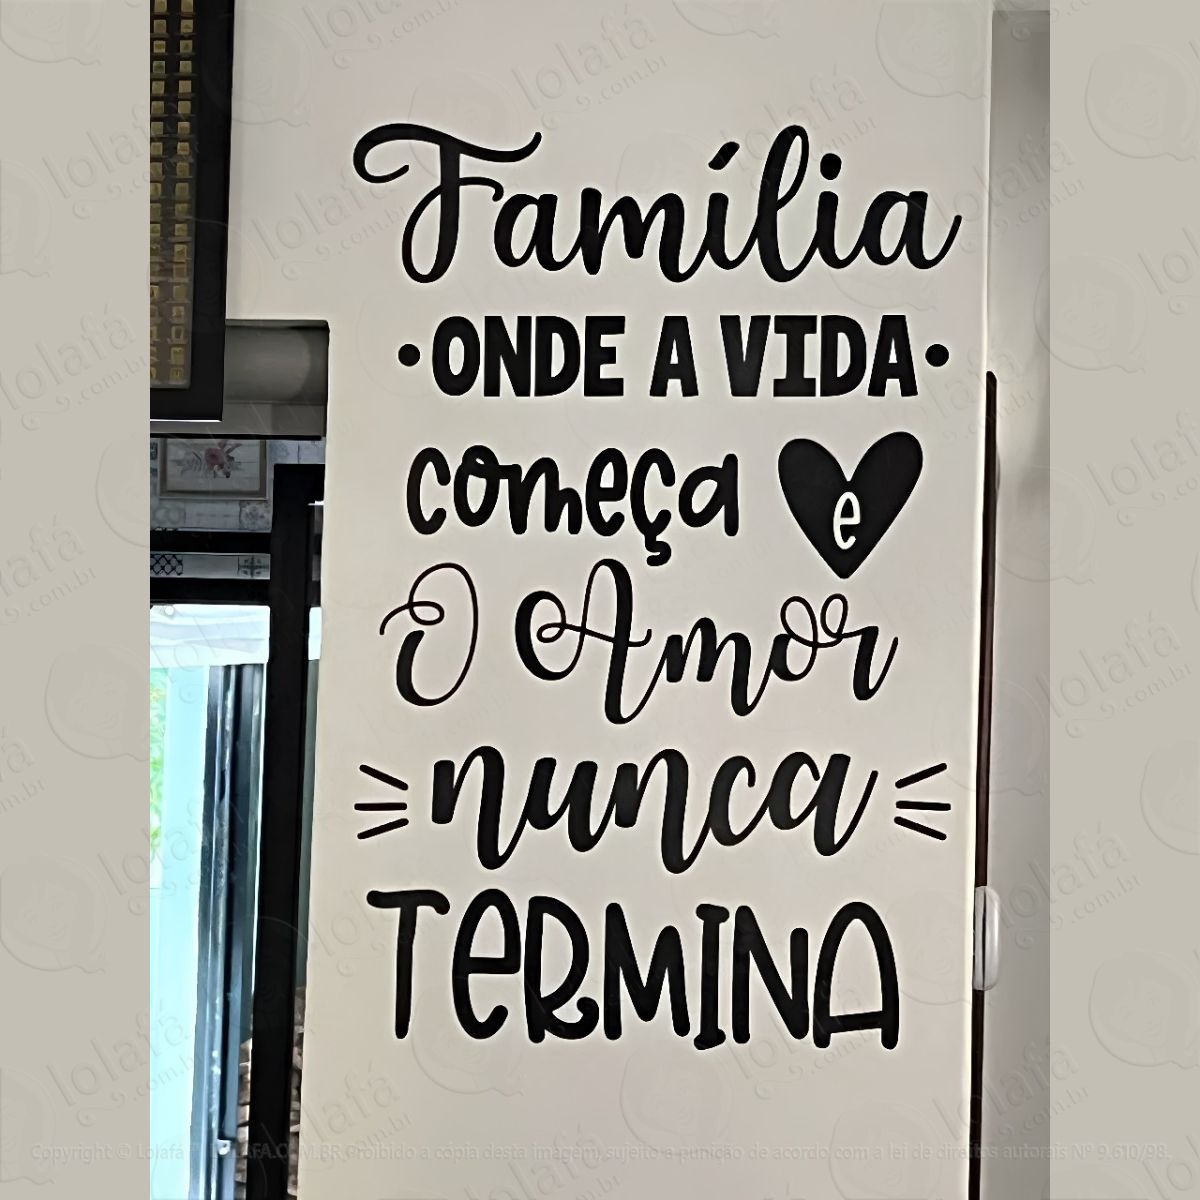 Família
• ONDE A VIDA •
começa e
O Amor
nunca
TeRMINA
lolafá
.com.br
Copyright © Lolafá
Proibido a copia desta imagem, sujeito a punição de acordo com a lei de direitos autorais Nº 9.610/98.